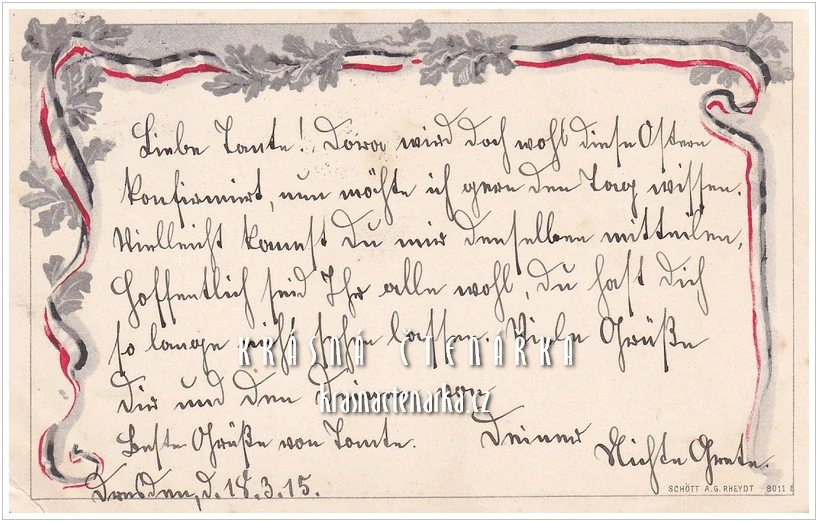 Liebe Tante! Dora wird doch wohl diese Ostern
konfirmiert, nun möchte ich gern den Tag wissen.
Vielleicht kannst Du mir denselben mitteilen,
Hoffentlich seid Ihr alle wohl, Du hast Dich
so lange nicht sehn lassen. Viele Grüße
KRÁSNÁ ČTENÁRKA
Dir und den Deinen von
krasnactenarka.cz
Beste Grüße von Tante. Deiner
Nichte Grete.
Dresden, d. 18.3.15.
SCHÖTT A.G. RHEYDT 8011 E